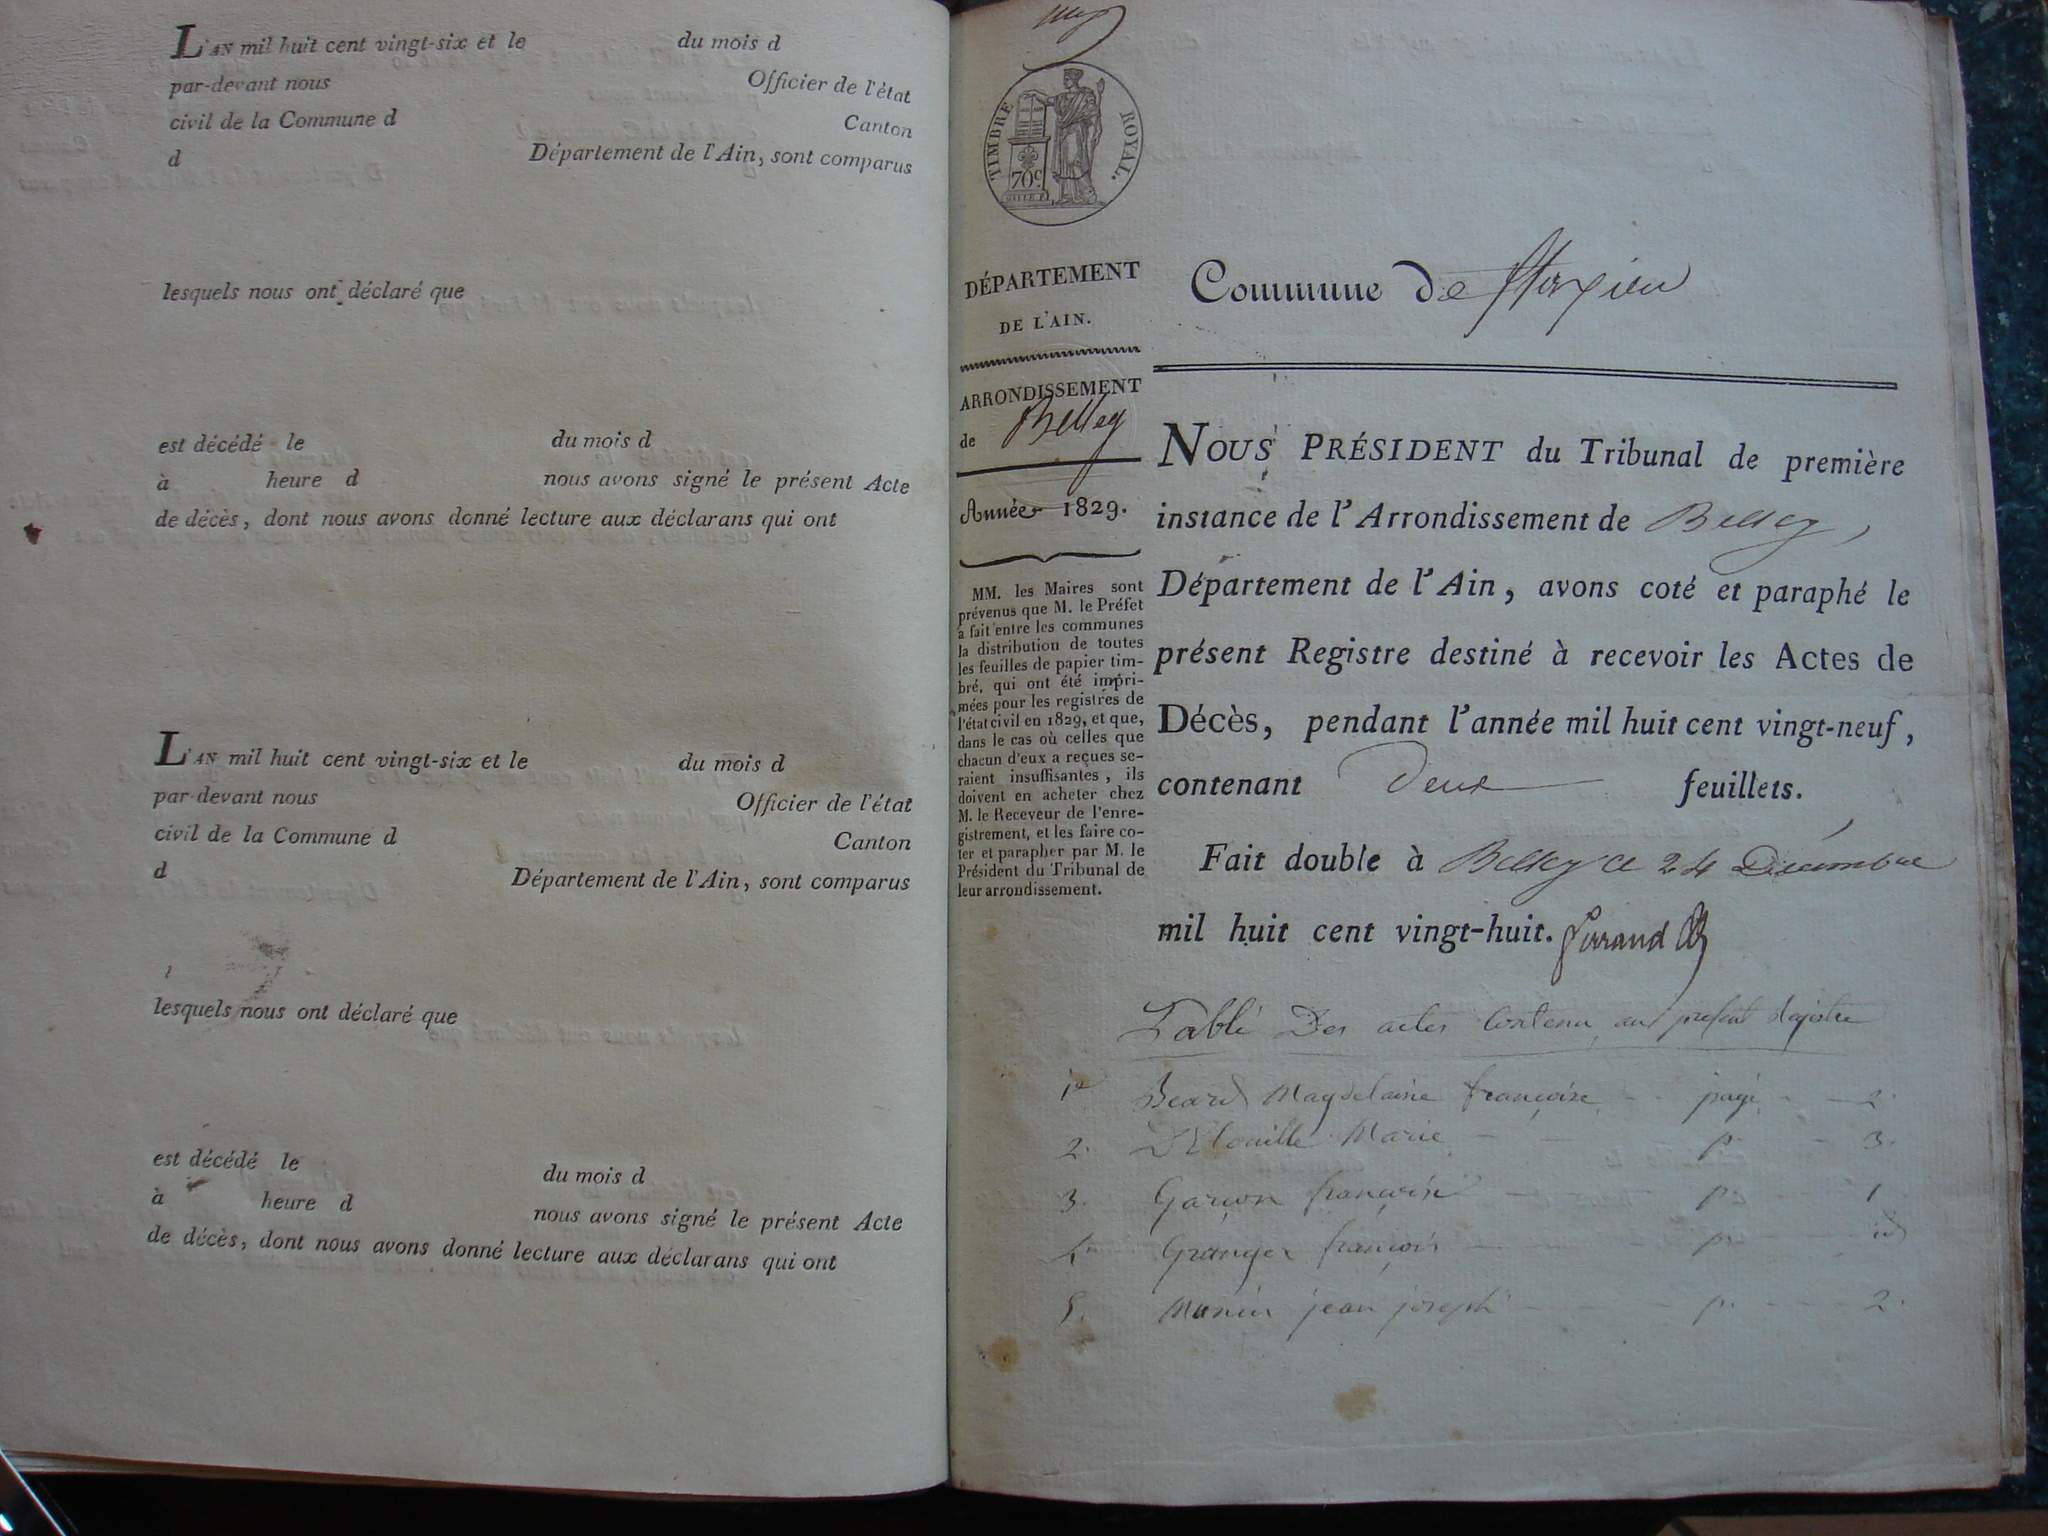 L'AN mil huit cent vingt-six et le du mois d
par-devant nous Officier de l'état
civil de la Commune d Canton
d Département de l'Ain, sont comparus
lesquels nous ont déclaré que
est décédé le du mois d
à heure d nous avons signé le présent Acte
de décès, dont nous avons donné lecture aux déclarans qui ont
L'AN mil huit cent vingt-six et le du mois d
par-devant nous Officier de l'état
civil de la Commune d Canton
d Département de l'Ain, sont comparus
lesquels nous ont déclaré que
est décédé le du mois d
à heure d nous avons signé le présent Acte
de décès, dont nous avons donné lecture aux déclarans qui ont
TIMBRE ROYAL.
70c
DÉPARTEMENT
DE L'AIN.
ARRONDISSEMENT
de Belley
Année 1829.
MM. les Maires sont
prévenus que M. le Préfet
a fait entre les communes
la distribution de toutes
les feuilles de papier tim-
bré, qui ont été impri-
mées pour les registres de
l'état civil en 1829, et que,
dans le cas où celles que
chacun d'eux a reçues se-
raient insuffisantes, ils
doivent en acheter chez
M. le Receveur de l'enre-
gistrement, et les faire co-
ter et parapher par M. le
Président du Tribunal de
leur arrondissement.
Commune de
NOUS PRÉSIDENT du Tribunal de première
instance de l'Arrondissement de Belley,
Département de l'Ain, avons coté et paraphé le
présent Registre destiné à recevoir les Actes de
Décès, pendant l'année mil huit cent vingt-neuf,
contenant Deux feuillets.
Fait double à Belley ce 24 Décembre
mil huit cent vingt-huit.
Table Des actes Contenu au present Registre
1er Beard Magdelaine françoise page 2.
2. Marie p. 3.
3. Garçon françoise p. 1
4. Granger françois p. id
5. jean joseph p. 2.